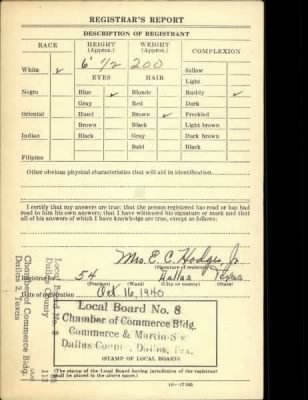 REGISTRAR'S REPORT
DESCRIPTION OF REGISTRANT
RACE HEIGHT (Approx.) WEIGHT (Approx.) COMPLEXION
White ✓ 6' 1/2 200 Sallow
EYES HAIR Light
Negro Blue ✓ Blonde Ruddy ✓
Gray Red Dark
Oriental Hazel Brown ✓ Freckled
Brown Black Light brown
Indian Black Gray Dark brown
Bald Black
Filipino
Other obvious physical characteristics that will aid in identification
I certify that my answers are true; that the person registered has read or has had read to him his own answers; that I have witnessed his signature or mark and that all of his answers of which I have knowledge are true, except as follows:
Mrs. E. C. Hodges, Jr.
(Signature of registrar)
Registrar for 54 Dallas Texas
(Precinct) (Ward) (City or county) (State)
Date of registration Oct. 16, 1940
Local Board No. 8
Chamber of Commerce Bldg.
Commerce & Martin Sts
Dallas County, Dallas, Tex.
(STAMP OF LOCAL BOARD)
(The stamp of the Local Board having jurisdiction of the registrant shall be placed in the above space.)
Local Board No. 8
Dallas County
Chamber of Commerce Bldg.
Dallas 2, Texas